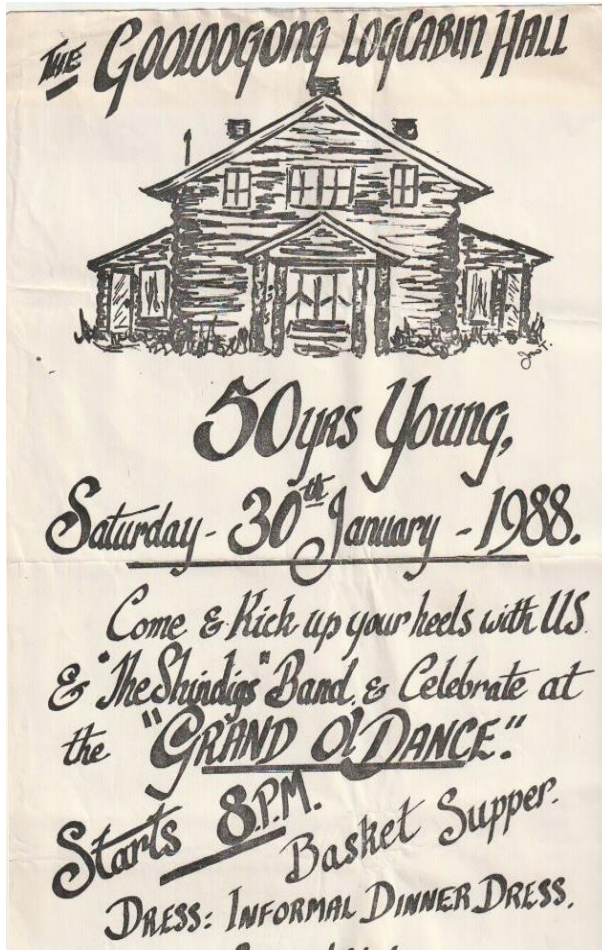 THE GOOLOOGONG LOGCABIN HALL
50yrs Young,
Saturday - 30th January - 1988.
Come & Kick up your heels with US
& "The Shindigs" Band, & Celebrate at
the "GRAND Ol' DANCE".
Starts 8P.M.
Basket Supper.
DRESS: INFORMAL DINNER DRESS.